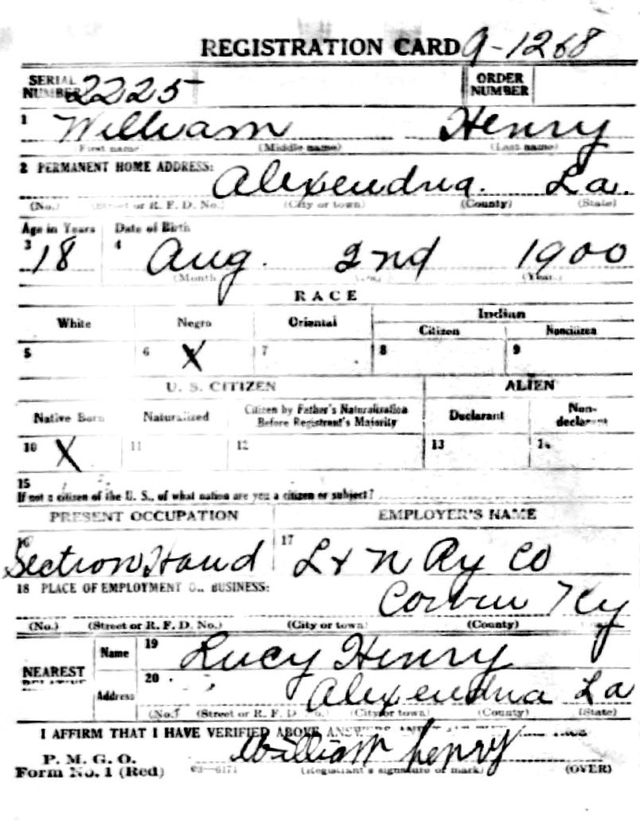 REGISTRATION CARD 9-1268
SERIAL NUMBER 2225 ORDER NUMBER
1 William Henry
First name (Middle name) (Last name)
2 PERMANENT HOME ADDRESS:
Alexendria. La.
(No.) (Street or R. F. D. No.) (City or town) (County) (State)
Age in Years Date of Birth
3 18 4 Aug. 2nd 1900
(Month (Year.)
RACE
White Negro Oriental Indian
Citizen Noncitizen
5 6 X 7 8 9
U. S. CITIZEN ALIEN
Native Born Naturalized Citizen by Father's Naturalization Before Registrant's Majority Declarant Non-declarant
10 X 11 12 13 14
15
If not a citizen of the U. S., of what nation are you a citizen or subject?
PRESENT OCCUPATION EMPLOYER'S NAME
16 Section Hand 17 L & N Ry Co
18 PLACE OF EMPLOYMENT OR BUSINESS:
Corbin Ky
(No.) (Street or R. F. D. No.) (City or town) (County)
NEAREST RELATIVE Name 19 Lucy Henry
Address 20 Alexendria La
(No.) (Street or R. F. D. No.) (City or town) (County) (State)
I AFFIRM THAT I HAVE VERIFIED ABOVE ANSWERS AND THAT THEY ARE TRUE
P. M. G. O. William Henry
Form No. 1 (Red) 03—6171 (Registrant's signature or mark) (OVER)